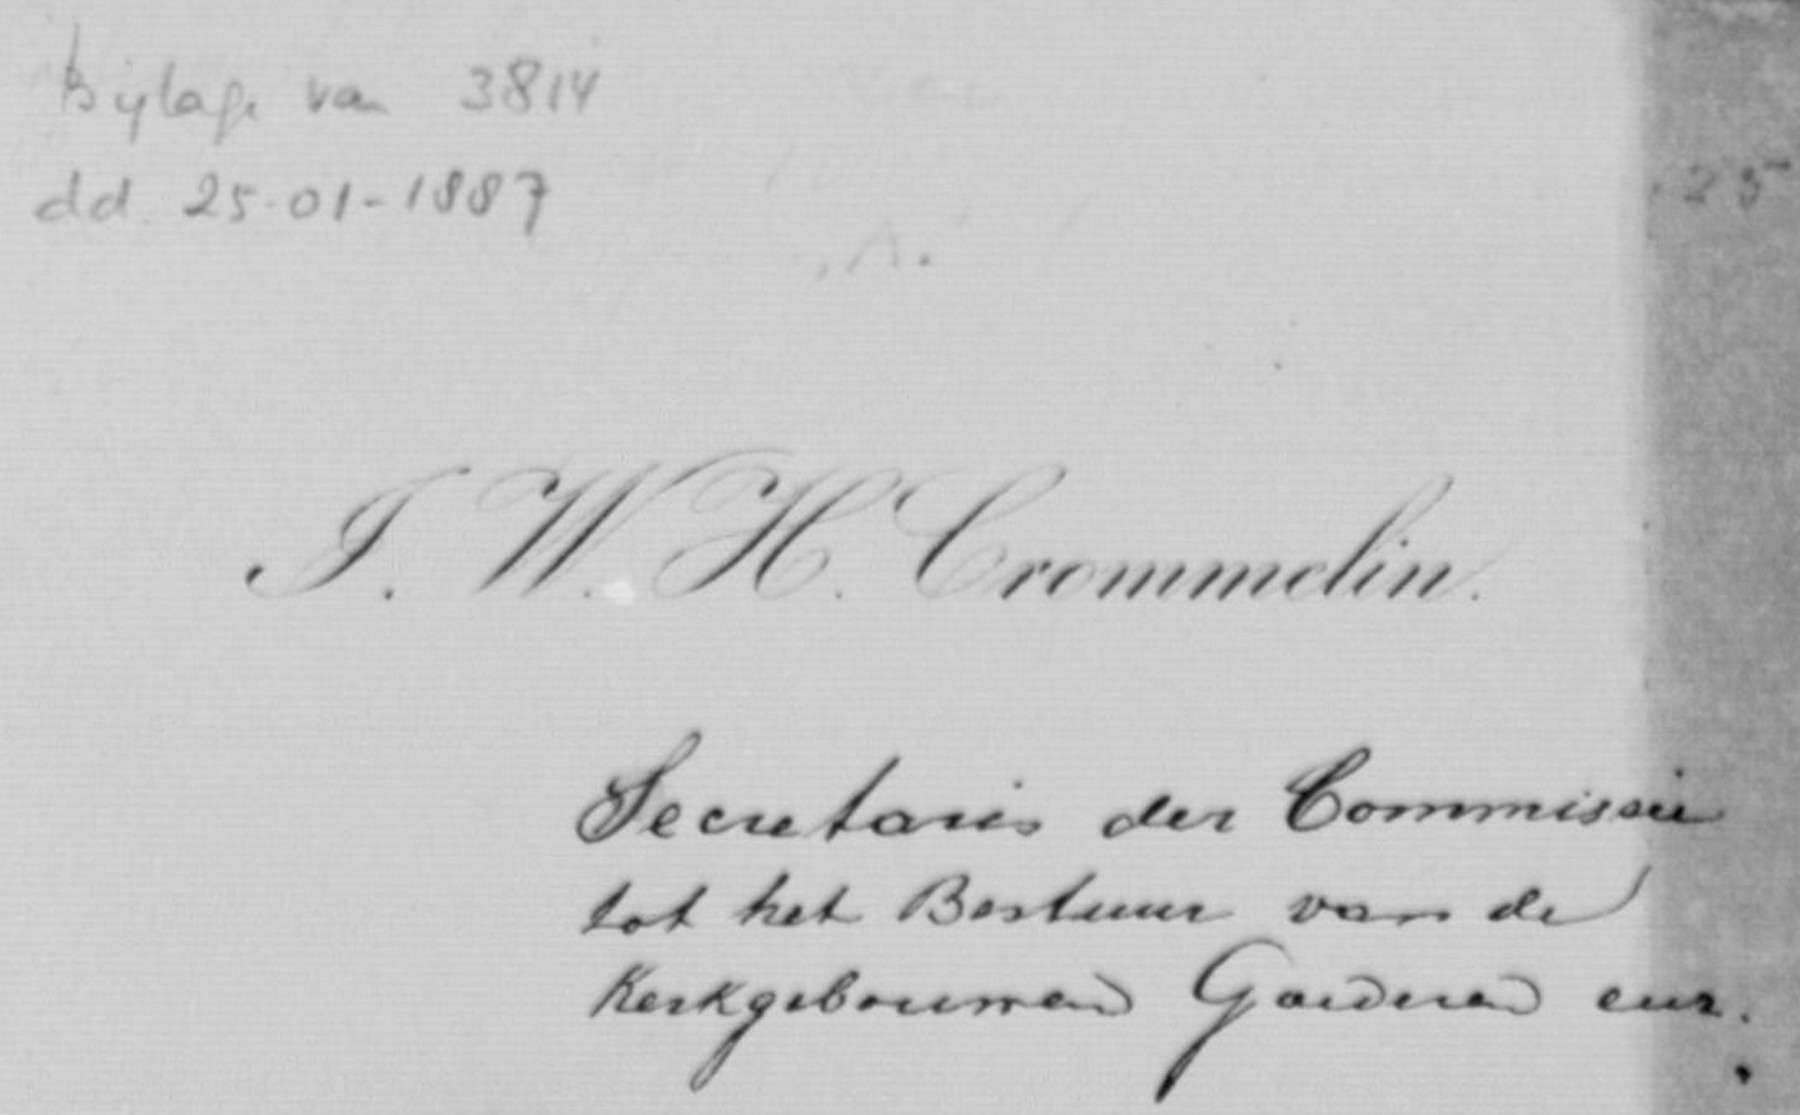 Bijlage van 3814
dd. 25-01-1887
J. W. H. Crommelin.
Secretaris der Commissie
tot het Bestuur van de
Kerkgebouwen Goederen enz.